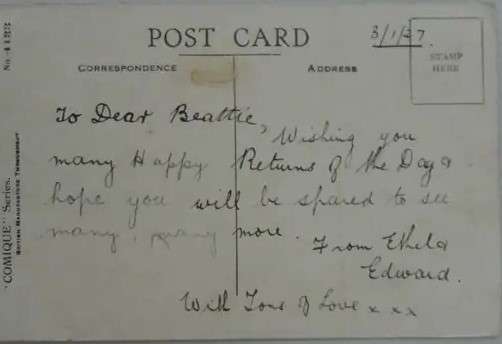 POST CARD
3/1/27.
CORRESPONDENCE
ADDRESS
STAMP
HERE
To Dear Beattie,
Wishing you
many Happy Returns of the Day &
hope you will be spared to see
many, many more.
From Ethel &
Edward.
With Tons of Love x x x
"COMIQUE" Series.
BRITISH MANUFACTURE THROUGHOUT
No.